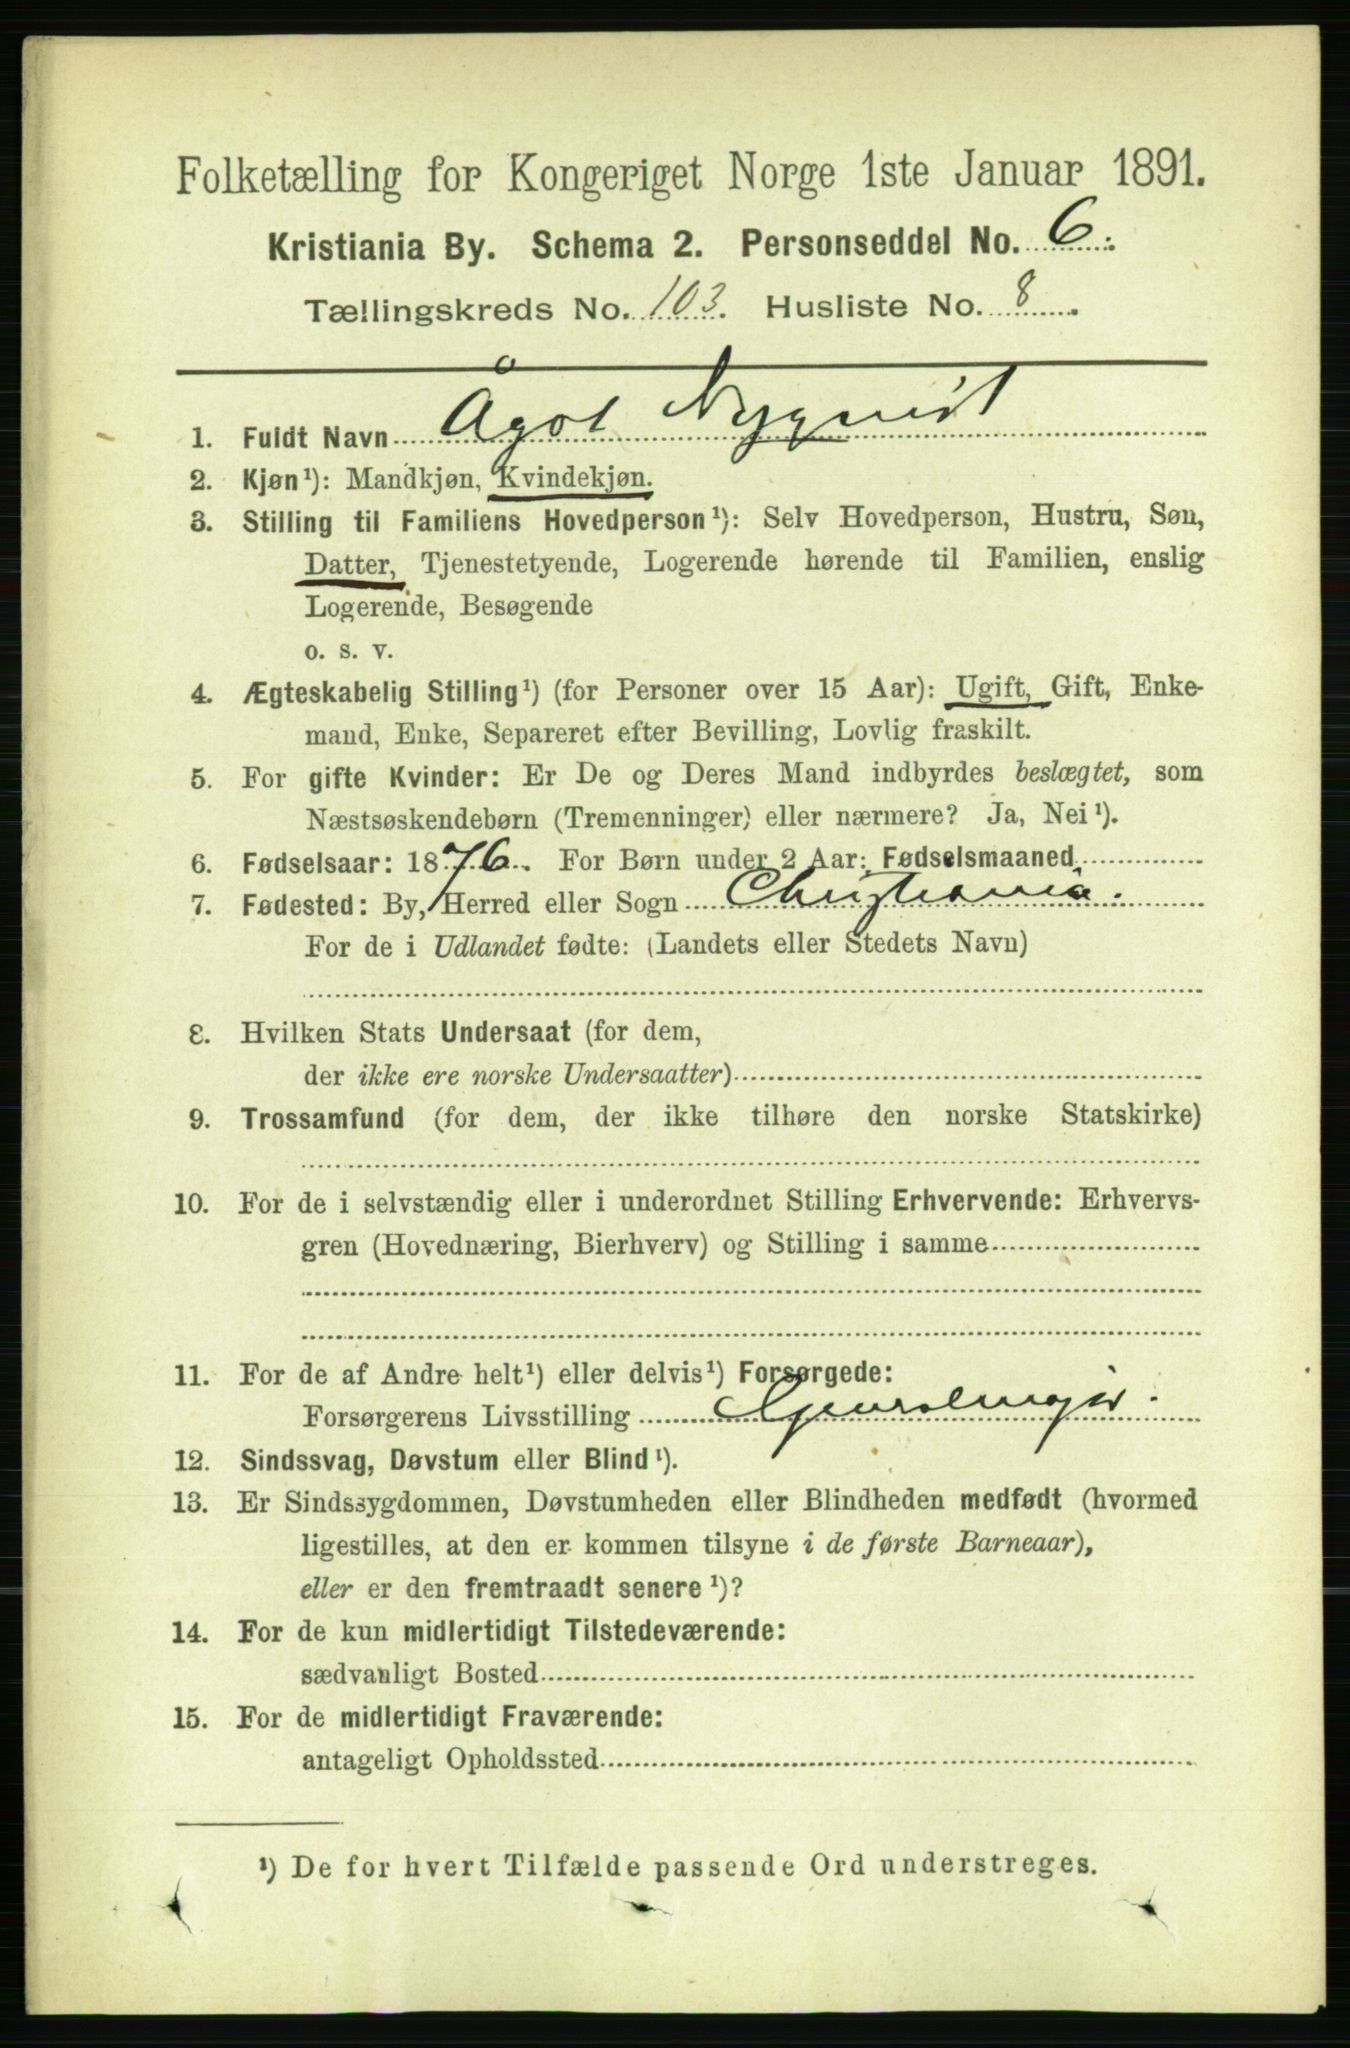 Folketælling for Kongeriget Norge 1ste Januar 1891.
Kristiania By. Schema 2. Personseddel No. 6.
Tællingskreds No. 103. Husliste No. 8.
1. Fuldt Navn Ågot Nyqvist
2. Kjøn¹): Mandkjøn, Kvindekjøn.
3. Stilling til Familiens Hovedperson¹): Selv Hovedperson, Hustru, Søn,
Datter, Tjenestetyende, Logerende hørende til Familien, enslig
Logerende, Besøgende
o. s. v.
4. Ægteskabelig Stilling¹) (for Personer over 15 Aar): Ugift, Gift, Enke-
mand, Enke, Separeret efter Bevilling, Lovlig fraskilt.
5. For gifte Kvinder: Er De og Deres Mand indbyrdes beslægtet, som
Næstsøskendebørn (Tremenninger) eller nærmere? Ja, Nei¹).
6. Fødselsaar: 1876. For Børn under 2 Aar: Fødselsmaaned
7. Fødested: By, Herred eller Sogn Christiania.
For de i Udlandet fødte: (Landets eller Stedets Navn)
8. Hvilken Stats Undersaat (for dem,
der ikke ere norske Undersaatter)
9. Trossamfund (for dem, der ikke tilhøre den norske Statskirke)
10. For de i selvstændig eller i underordnet Stilling Erhvervende: Erhvervs-
gren (Hovednæring, Bierhverv) og Stilling i samme
11. For de af Andre helt¹) eller delvis¹) Forsørgede:
Forsørgerens Livsstilling Generalmajor.
12. Sindssvag, Døvstum eller Blind¹).
13. Er Sindssygdommen, Døvstumheden eller Blindheden medfødt (hvormed
ligestilles, at den er kommen tilsyne i de første Barneaar),
eller er den fremtraadt senere¹)?
14. For de kun midlertidigt Tilstedeværende:
sædvanligt Bosted
15. For de midlertidigt Fraværende:
antageligt Opholdssted
¹) De for hvert Tilfælde passende Ord understreges.